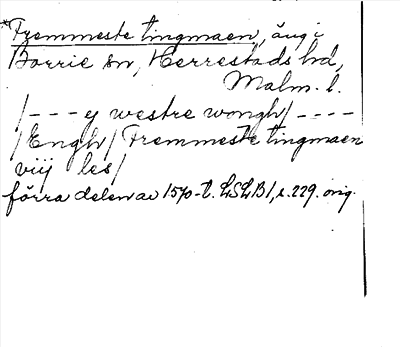 *Fremmeste tingmaen, äng i
Borrie sn, Herrestads hd,
Malm. l.
/---ej westre wongh/----
/Engh/ Fremmeste tingmaen
viij les/
förra delen av 1570-t. LSLB1, s. 229. orig.